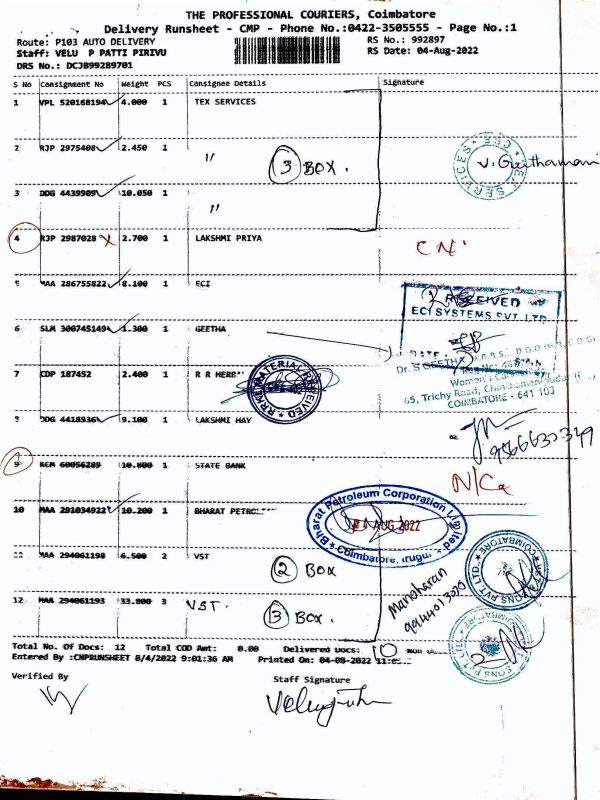 THE PROFESSIONAL COURIERS, Coimbatore
Delivery Runsheet - CMP - Phone No.:0422-3505555 - Page No.:1
Route: P103 AUTO DELIVERY RS No.: 992897
Staff: VELU P PATTI PIRIVU RS Date: 04-Aug-2022
DRS No.: DCJB99289701
S No Consignment No Weight PCS Consignee Details Signature
1 VPL 520168194 4.000 1 TEX SERVICES
2 RJP 2975408 2.450 1 〃 3 BOX. V. Geethamani
3 DDG 4439909 10.050 1 〃
4 RJP 2987028 X 2.700 1 LAKSHMI PRIYA
5 MAA 286755822 8.100 1 ECI
RECEIVED
ECI SYSTEMS PVT. LTD
6 SLM 300745149 1.300 1 GEETHA
Dr. S GEETHA
65, Trichy Road,
COIMBATORE - 641 103
7 CDP 187452 2.400 1 R R HERB
MATERIAL RECEIVED
8 DDG 4418936 9.100 1 LAKSHMI HAY
9 KCM 60056289 10.800 1 STATE BANK
10 MAA 291034922 10.200 1 BHARAT PETROL
Bharat Petroleum Corporation Limited
AUG 2022
Coimbatore, Irugur
11 MAA 294061198 6.500 2 VST 2 BOX
Manoharan
12 MAA 294061193 33.800 3 VST. 3 BOX.
Total No. Of Docs: 12 Total COD Amt: 0.00 Delivered Docs: 10
Entered By :CMPRUNSHEET 8/4/2022 9:01:36 AM Printed On: 04-08-2022
Verified By Staff Signature